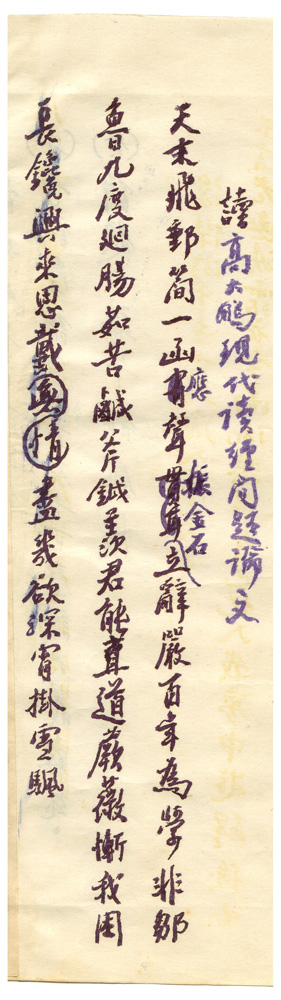 讀高大鵬現代讀經問題論文
天末飛郵簡一函應聲振金石立辭嚴百年為學非鄒
魯日九度廻腸茹苦鹹斧鉞羨君能道蕨薇慚我困
長鑱興來思戴情盡幾欲深宵掛雪颿